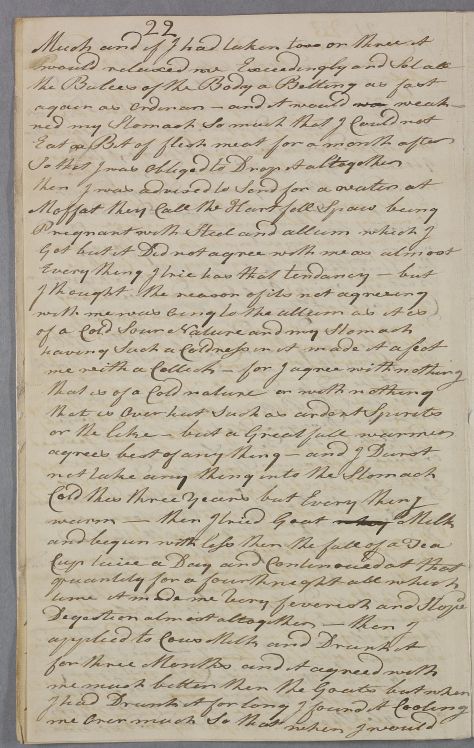 22
Much and if I had taken two or three it
would relaxed me Exceedingly and Set all
the Pulces of the Body a Belting as fast
again as ordinar – and it would weak-
ned my Stomach So much that I Could not
Eat a Bet of flesh meat for a month after
So that I was obliged to Drop it altogether
then I was advised to Send for a water at
Moffat they Call the Hartfall Spaw being
Pregnant with Steel and allum which I
Got but it Did not agree with me as almost
Every thing I trie has that tendancy – but
I thought the reason of its not agreeing
with me was oing to the allum as it is
of a Cold Sour Nature and my Stomach
having Such a Coldness in it made it afect
me with a Collick – for I agree with nothing
that is of a Cold nature or with nothing
that is Over hut Such as ardent Spirits
or the like – but a Greatfull warmes
agrees best of any thing – and I Durst
not take any thing into the Stomach
Cold this three Years but Every thing
warm – then I tried Goat Milk
and begun with less then the full of a Tea
Cup twice a Day and Continoued at that
quantity for a fourthneght all which
time it made me very feverish and Stop'd
Degestion almost altogether – then I
applied to Cows Milk and Drunk it
for three Months and it agreed with
me much better then the Goats but when
I had Drunk it for long I found it Cooling
me Over much So that when I would